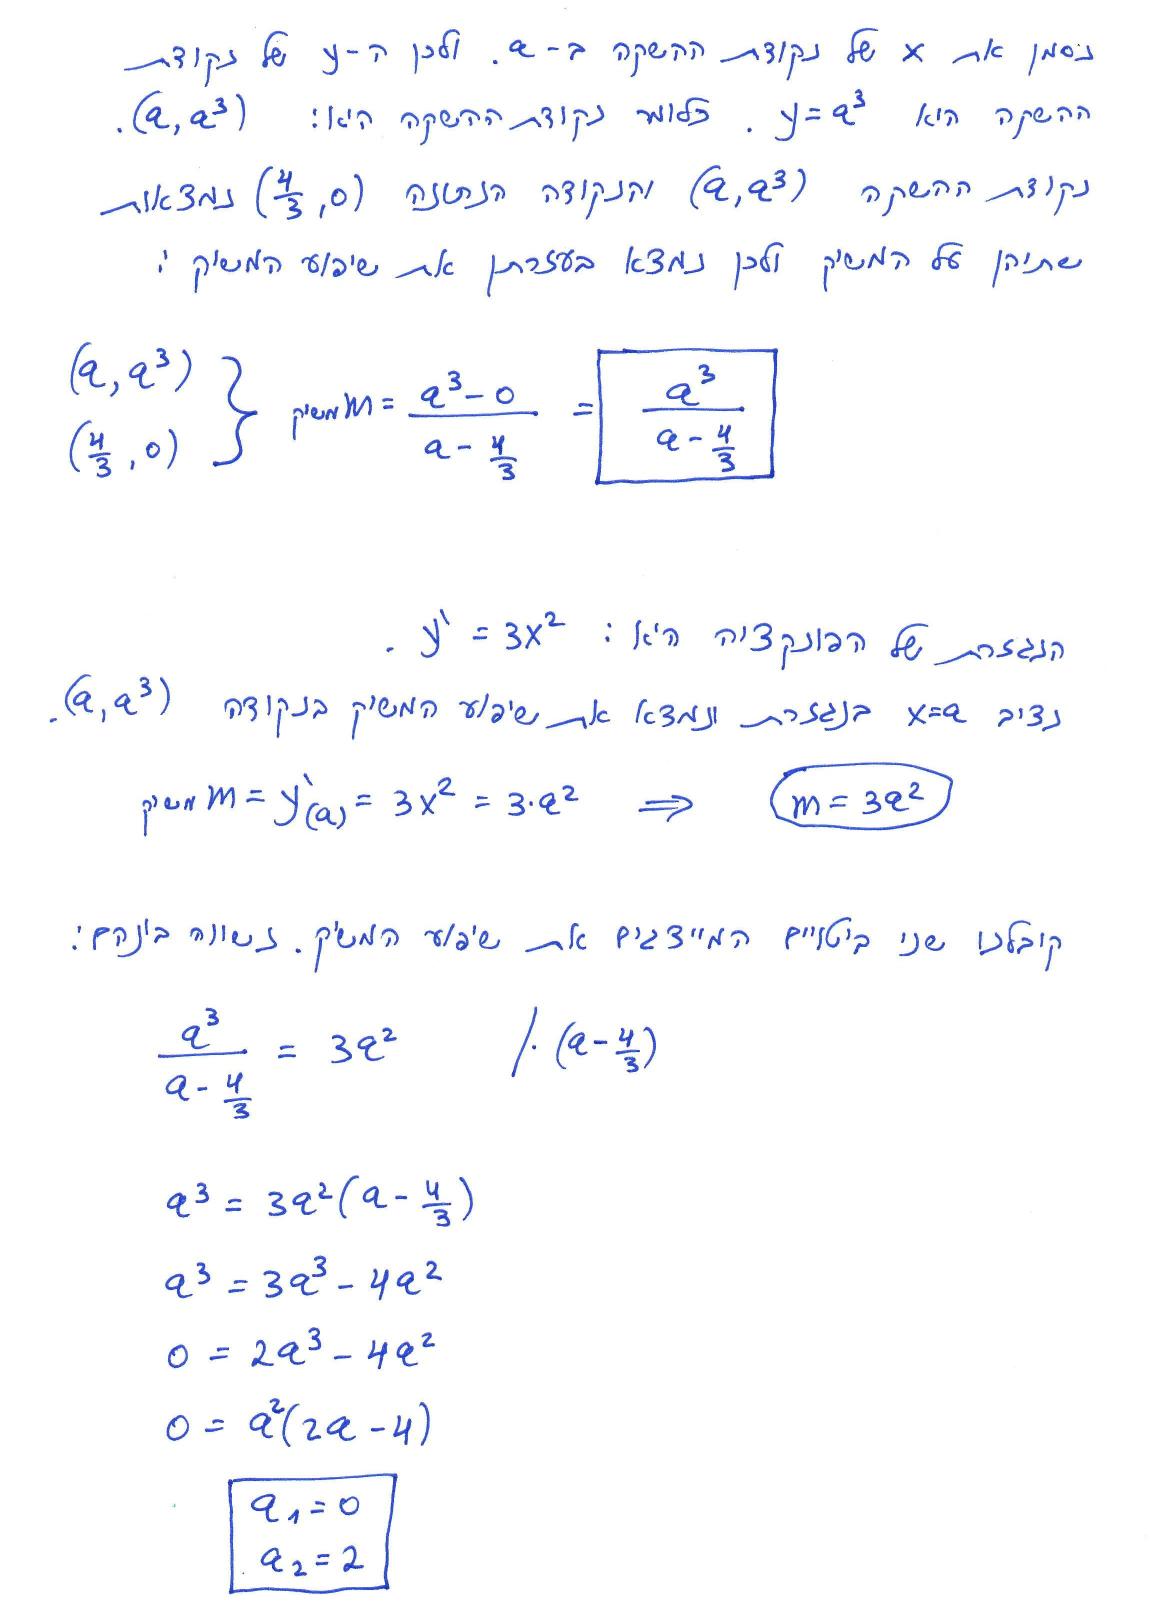 נסמן את x של נקודת ההשקה ב-a. ולכן ה-y של נקודת
ההשקה הוא y=a³. כלומר נקודת ההשקה היא: (a,a³).
נקודת ההשקה (a,a³) והנקודה הנתונה (4/3,0) נמצאות
שתיהן על המשיק ולכן נמצא בעזרתן את שיפוע המשיק:
(a,a³)
(4/3,0) } m משיק = (a³-0)/(a-4/3) = a³/(a-4/3)
הנגזרת של הפונקציה היא: y` = 3x².
נציב x=a בנגזרת ונמצא את שיפוע המשיק בנקודה (a,a³).
m משיק = y`(a) = 3x² = 3·a² ⇒ m = 3a²
קיבלנו שני ביטויים המייצגים את שיפוע המשיק. נשווה ביניהם:
a³/(a-4/3) = 3a² /·(a-4/3)
a³ = 3a²(a-4/3)
a³ = 3a³-4a²
0 = 2a³-4a²
0 = a²(2a-4)
a₁=0
a₂=2